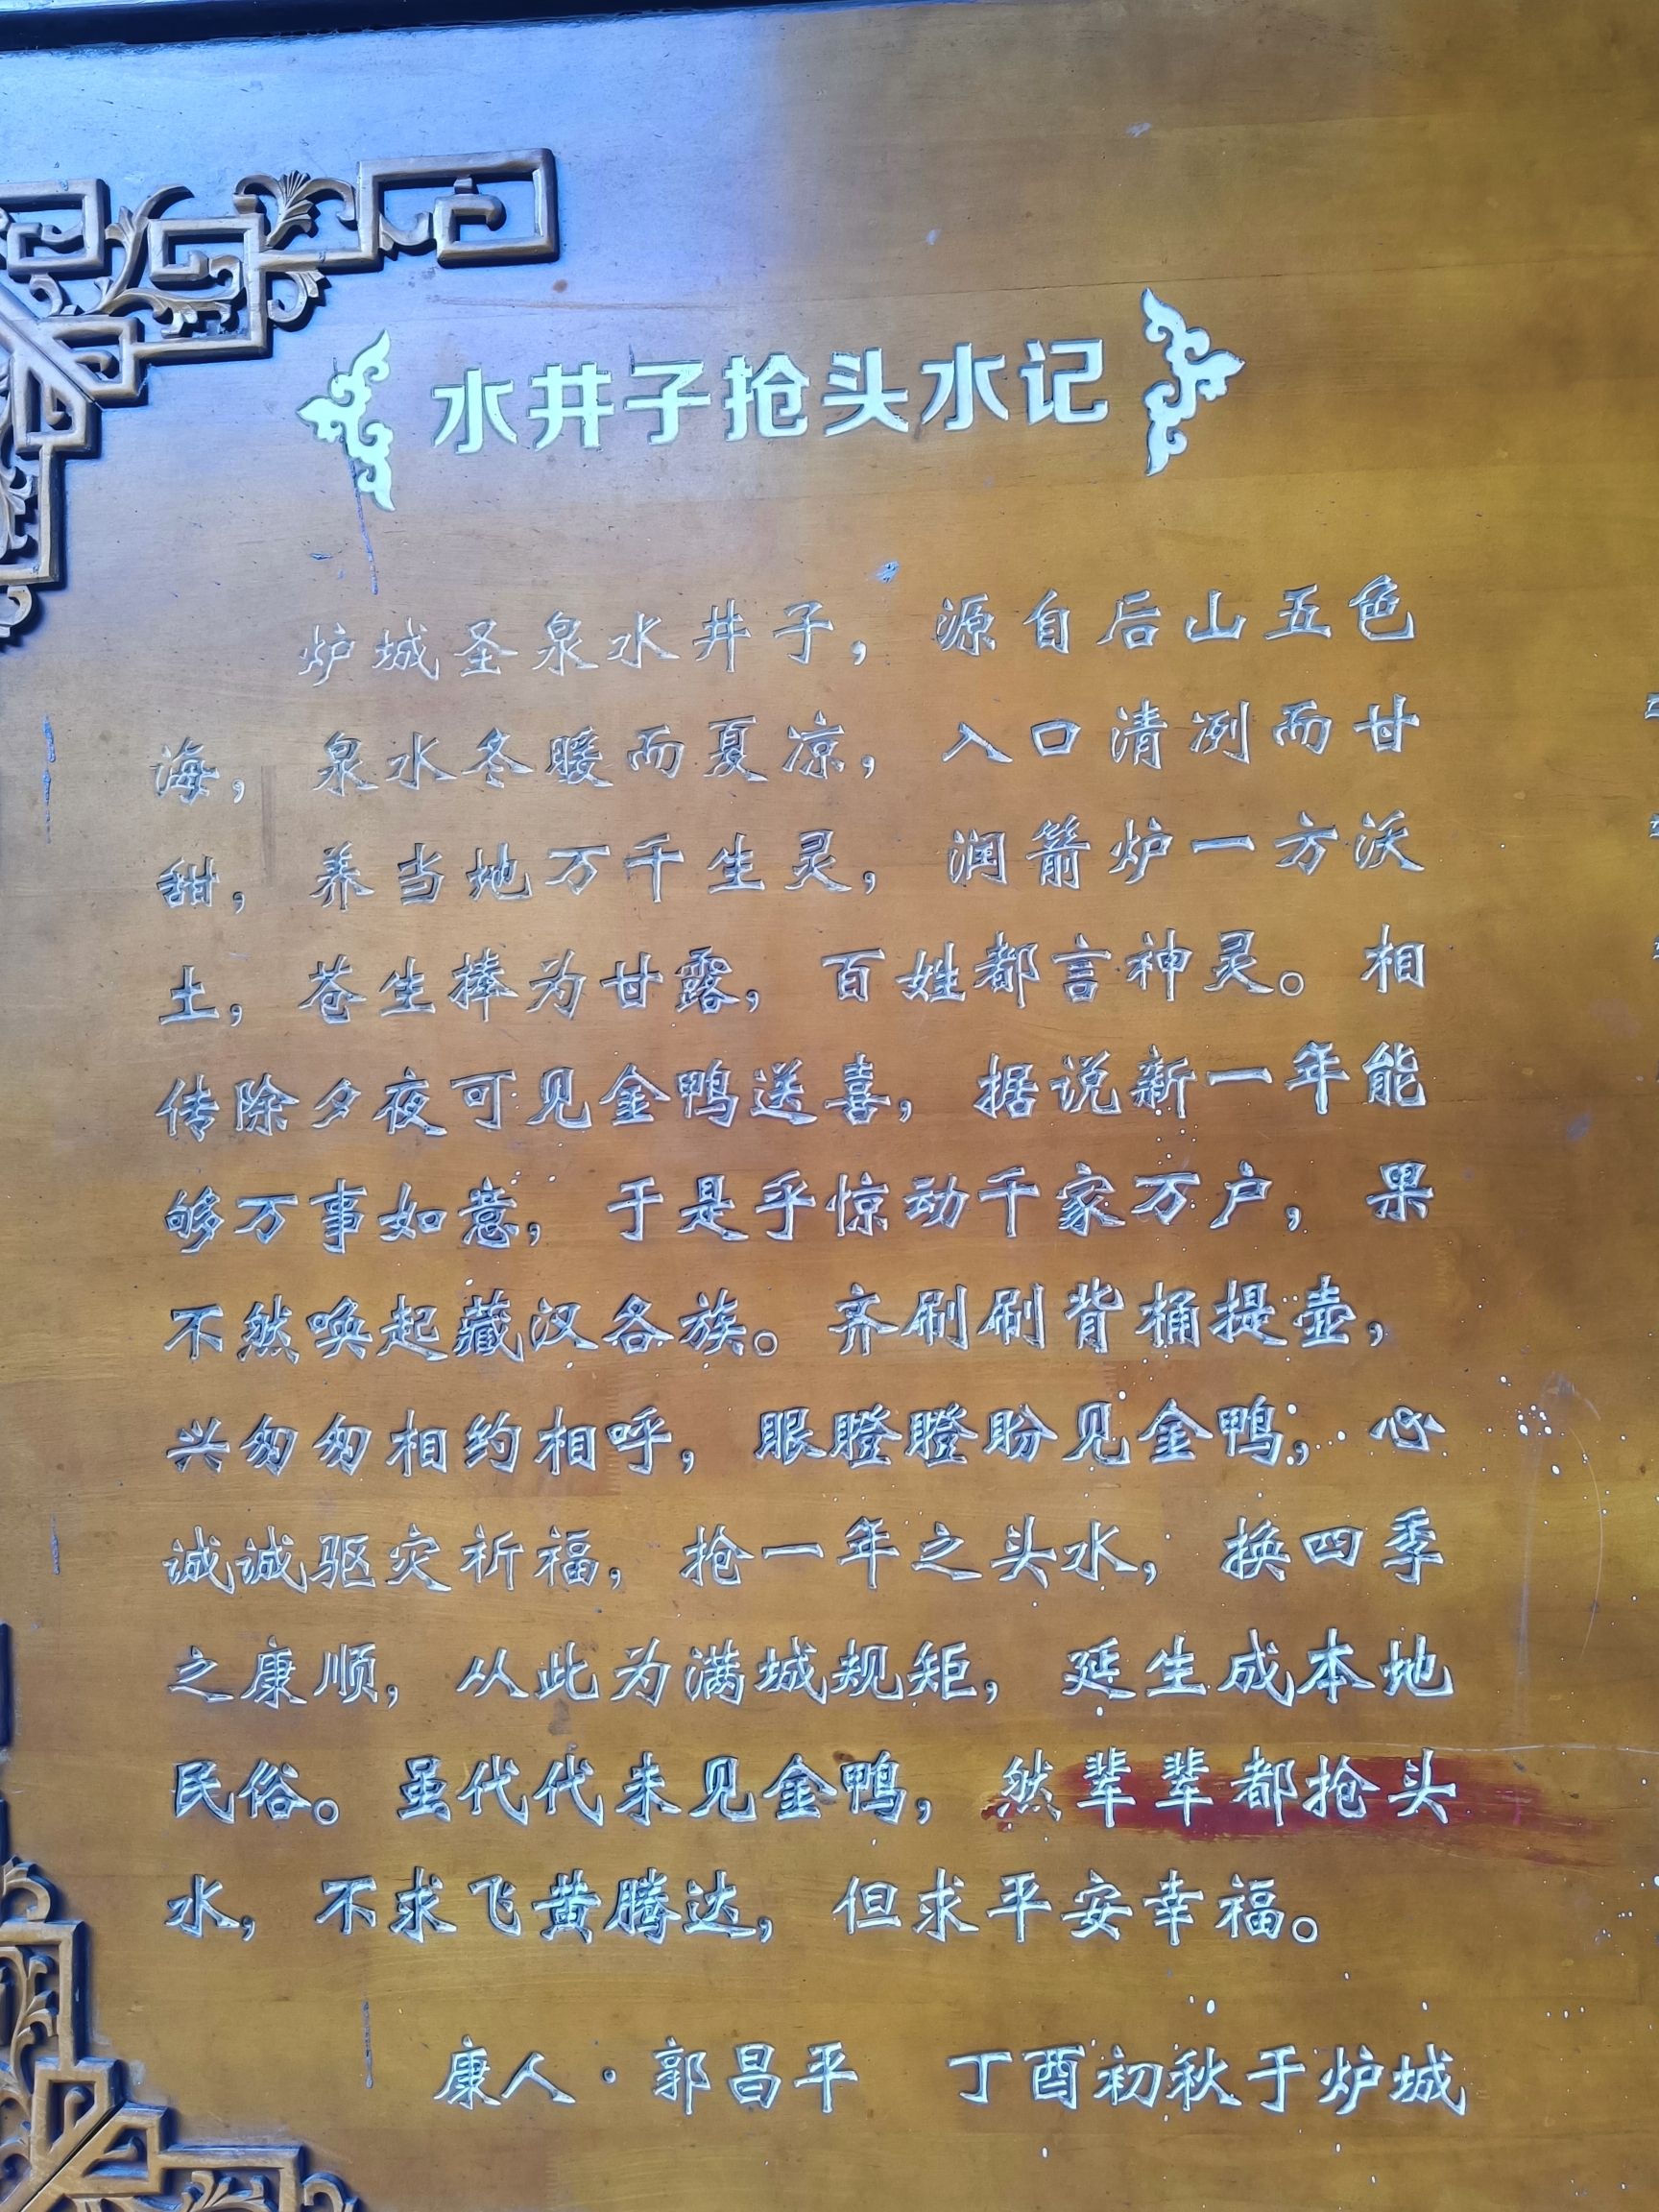 水井子抢头水记
炉城圣泉水井子，源自后山五色
海，泉水冬暖而夏凉，入口清冽而甘
甜，养当地万千生灵，润箭炉一方沃
土，苍生捧为甘露，百姓都言神灵。相
传除夕夜可见金鸭送喜，据说新一年能
够万事如意，于是乎惊动千家万户，果
不然唤起藏汉各族。齐刷刷背桶提壶，
兴匆匆相约相呼，眼瞪瞪盼见金鸭，心
诚诚驱灾祈福，抢一年之头水，换四季
之康顺，从此为满城规矩，延生成本地
民俗。虽代代未见金鸭，然辈辈都抢头
水，不求飞黄腾达，但求平安幸福。
康人·郭昌平 丁酉初秋于炉城